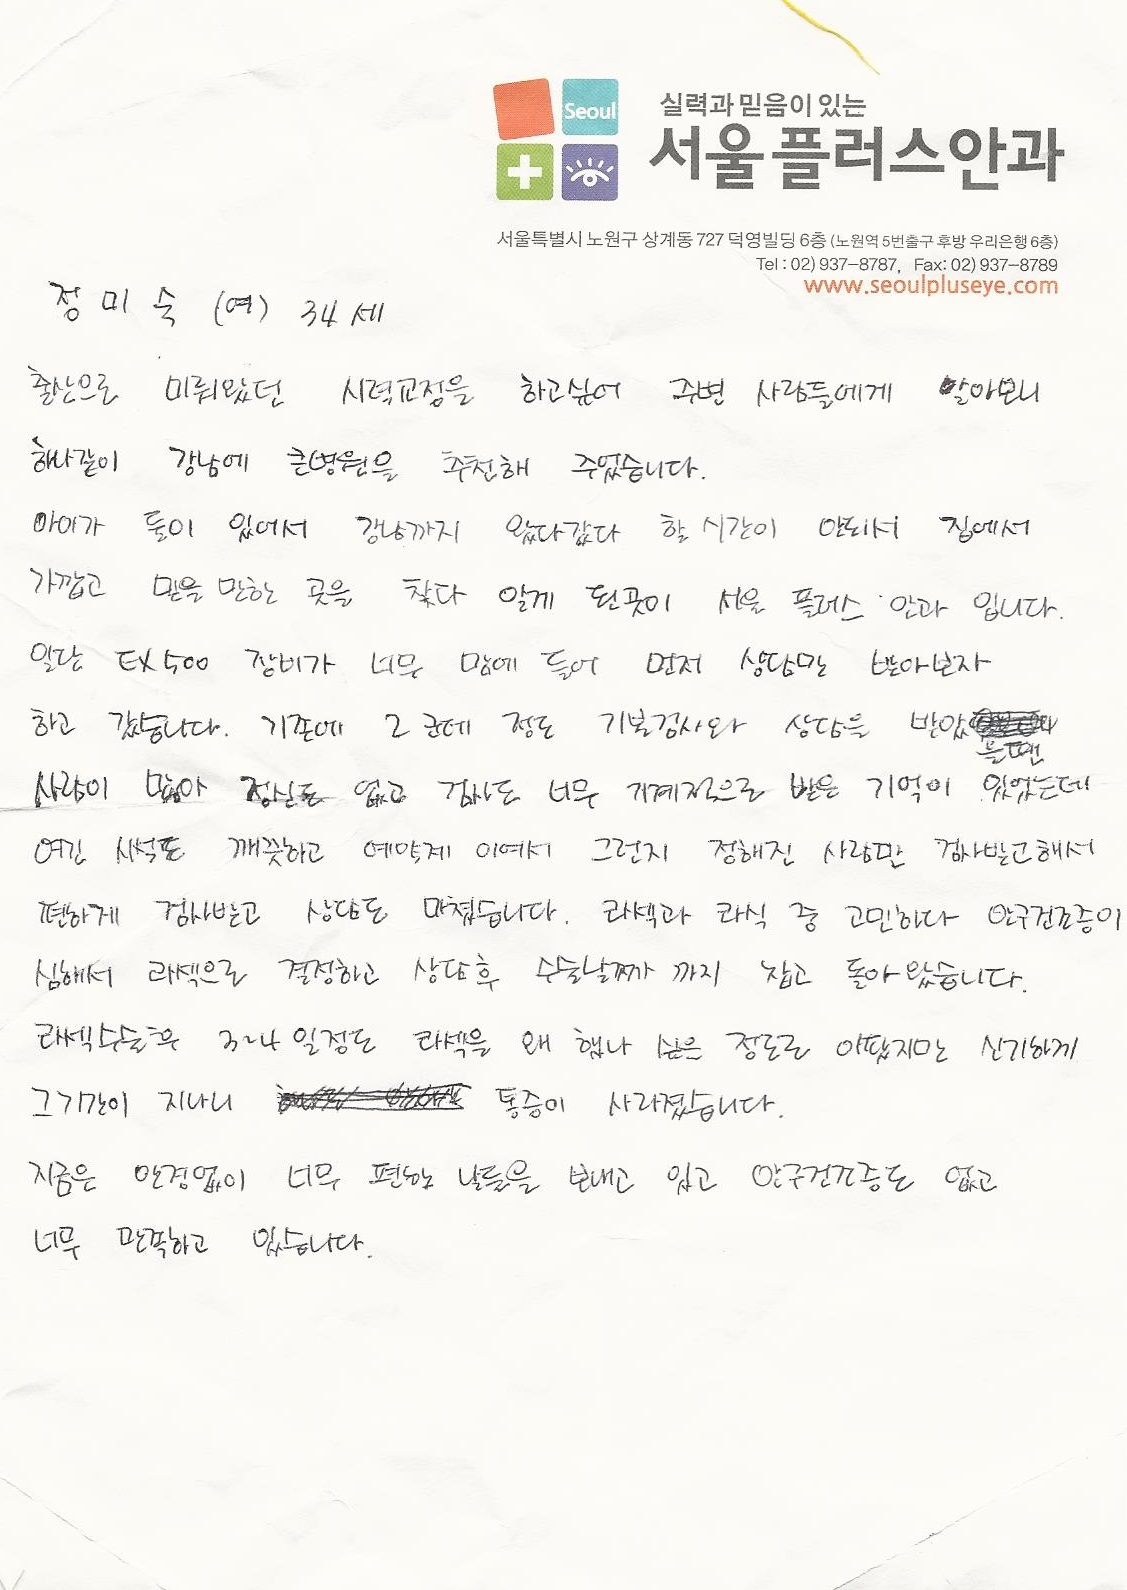 Seoul
실력과 믿음이 있는
서울플러스안과
서울특별시 노원구 상계동 727 덕영빌딩 6층 (노원역 5번출구 후방 우리은행 6층)
Tel : 02) 937-8787, Fax: 02) 937-8789
www.seoulpluseye.com
정미숙 (여) 34세
출산으로 미뤄왔던 시력교정을 하고싶어 주변 사람들에게 알아보니
하나같이 강남에 큰병원을 추천해 주었습니다.
아이가 둘이 있어서 강남까지 왔다갔다 할 시간이 안되서 집에서
가깝고 믿을만한 곳을 찾다 알게 된곳이 서울 플러스 안과 입니다.
일단 EX500 장비가 너무 맘에 들어 먼저 상담만 받아보자
하고 갔습니다. 기존에 2군데 정도 기본검사와 상담을 받았
을땐
사람이 많아 정신도 없고 검사도 너무 기계적으로 받은 기억이 있었는데
여긴 시설도 깨끗하고 예약제 이여서 그런지 정해진 사람만 검사받고해서
편하게 검사받고 상담도 마쳤습니다. 라섹과 라식 중 고민하다 안구건조증이
심해서 라섹으로 결정하고 상담후 수술날짜가 까지 잡고 돌아왔습니다.
라섹수술후 3~4일정도 라섹을 왜 했나 싶은 정도로 아팠지만 신기하게
그기간이 지나니 통증이 사라졌습니다.
지금은 안경없이 너무 편한 날들을 보내고 있고 안구건조증도 없고
너무 만족하고 있습니다.